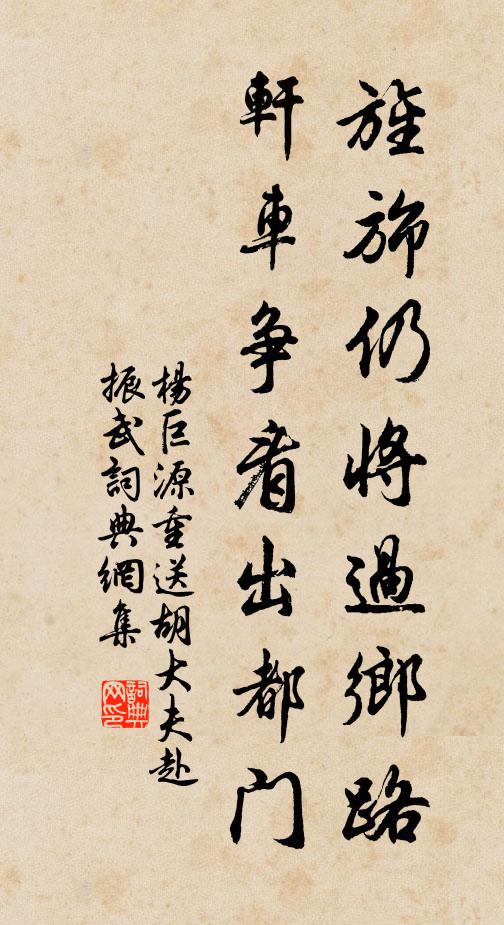 旌旆仍將過鄉路
軒車争看出都門
楊巨源重送胡大夫赴
振武詞典網集
詞典
网印